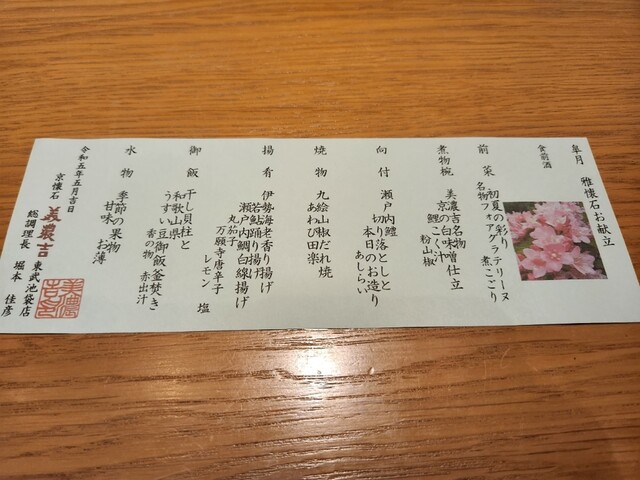 皐月　雅懐石お献立
食前酒
前菜　初夏の彩り
名物フォアグラテリーヌ　煮こごり
煮物椀　美濃吉名物
京の白味噌仕立
鯉こく汁
粉山椒
向付　瀬戸内鱧
切り落としと
本日のお造り
あしらい
焼物　丸絵山椒だれ焼
あわび田楽
揚肴　伊勢海老香り揚げ
若鮎踊り揚げ
瀬戸内鯛白線揚げ
丸茄子
万願寺唐辛子
レモン　塩
御飯　干し貝柱と
和歌山県
うすい豆御飯釜焚き
香の物　赤出汁
水物　季節の果物
甘味　お薄
令和五年五月吉日
京懐石　美濃吉　東武池袋店
総調理長　堀本　佳彦